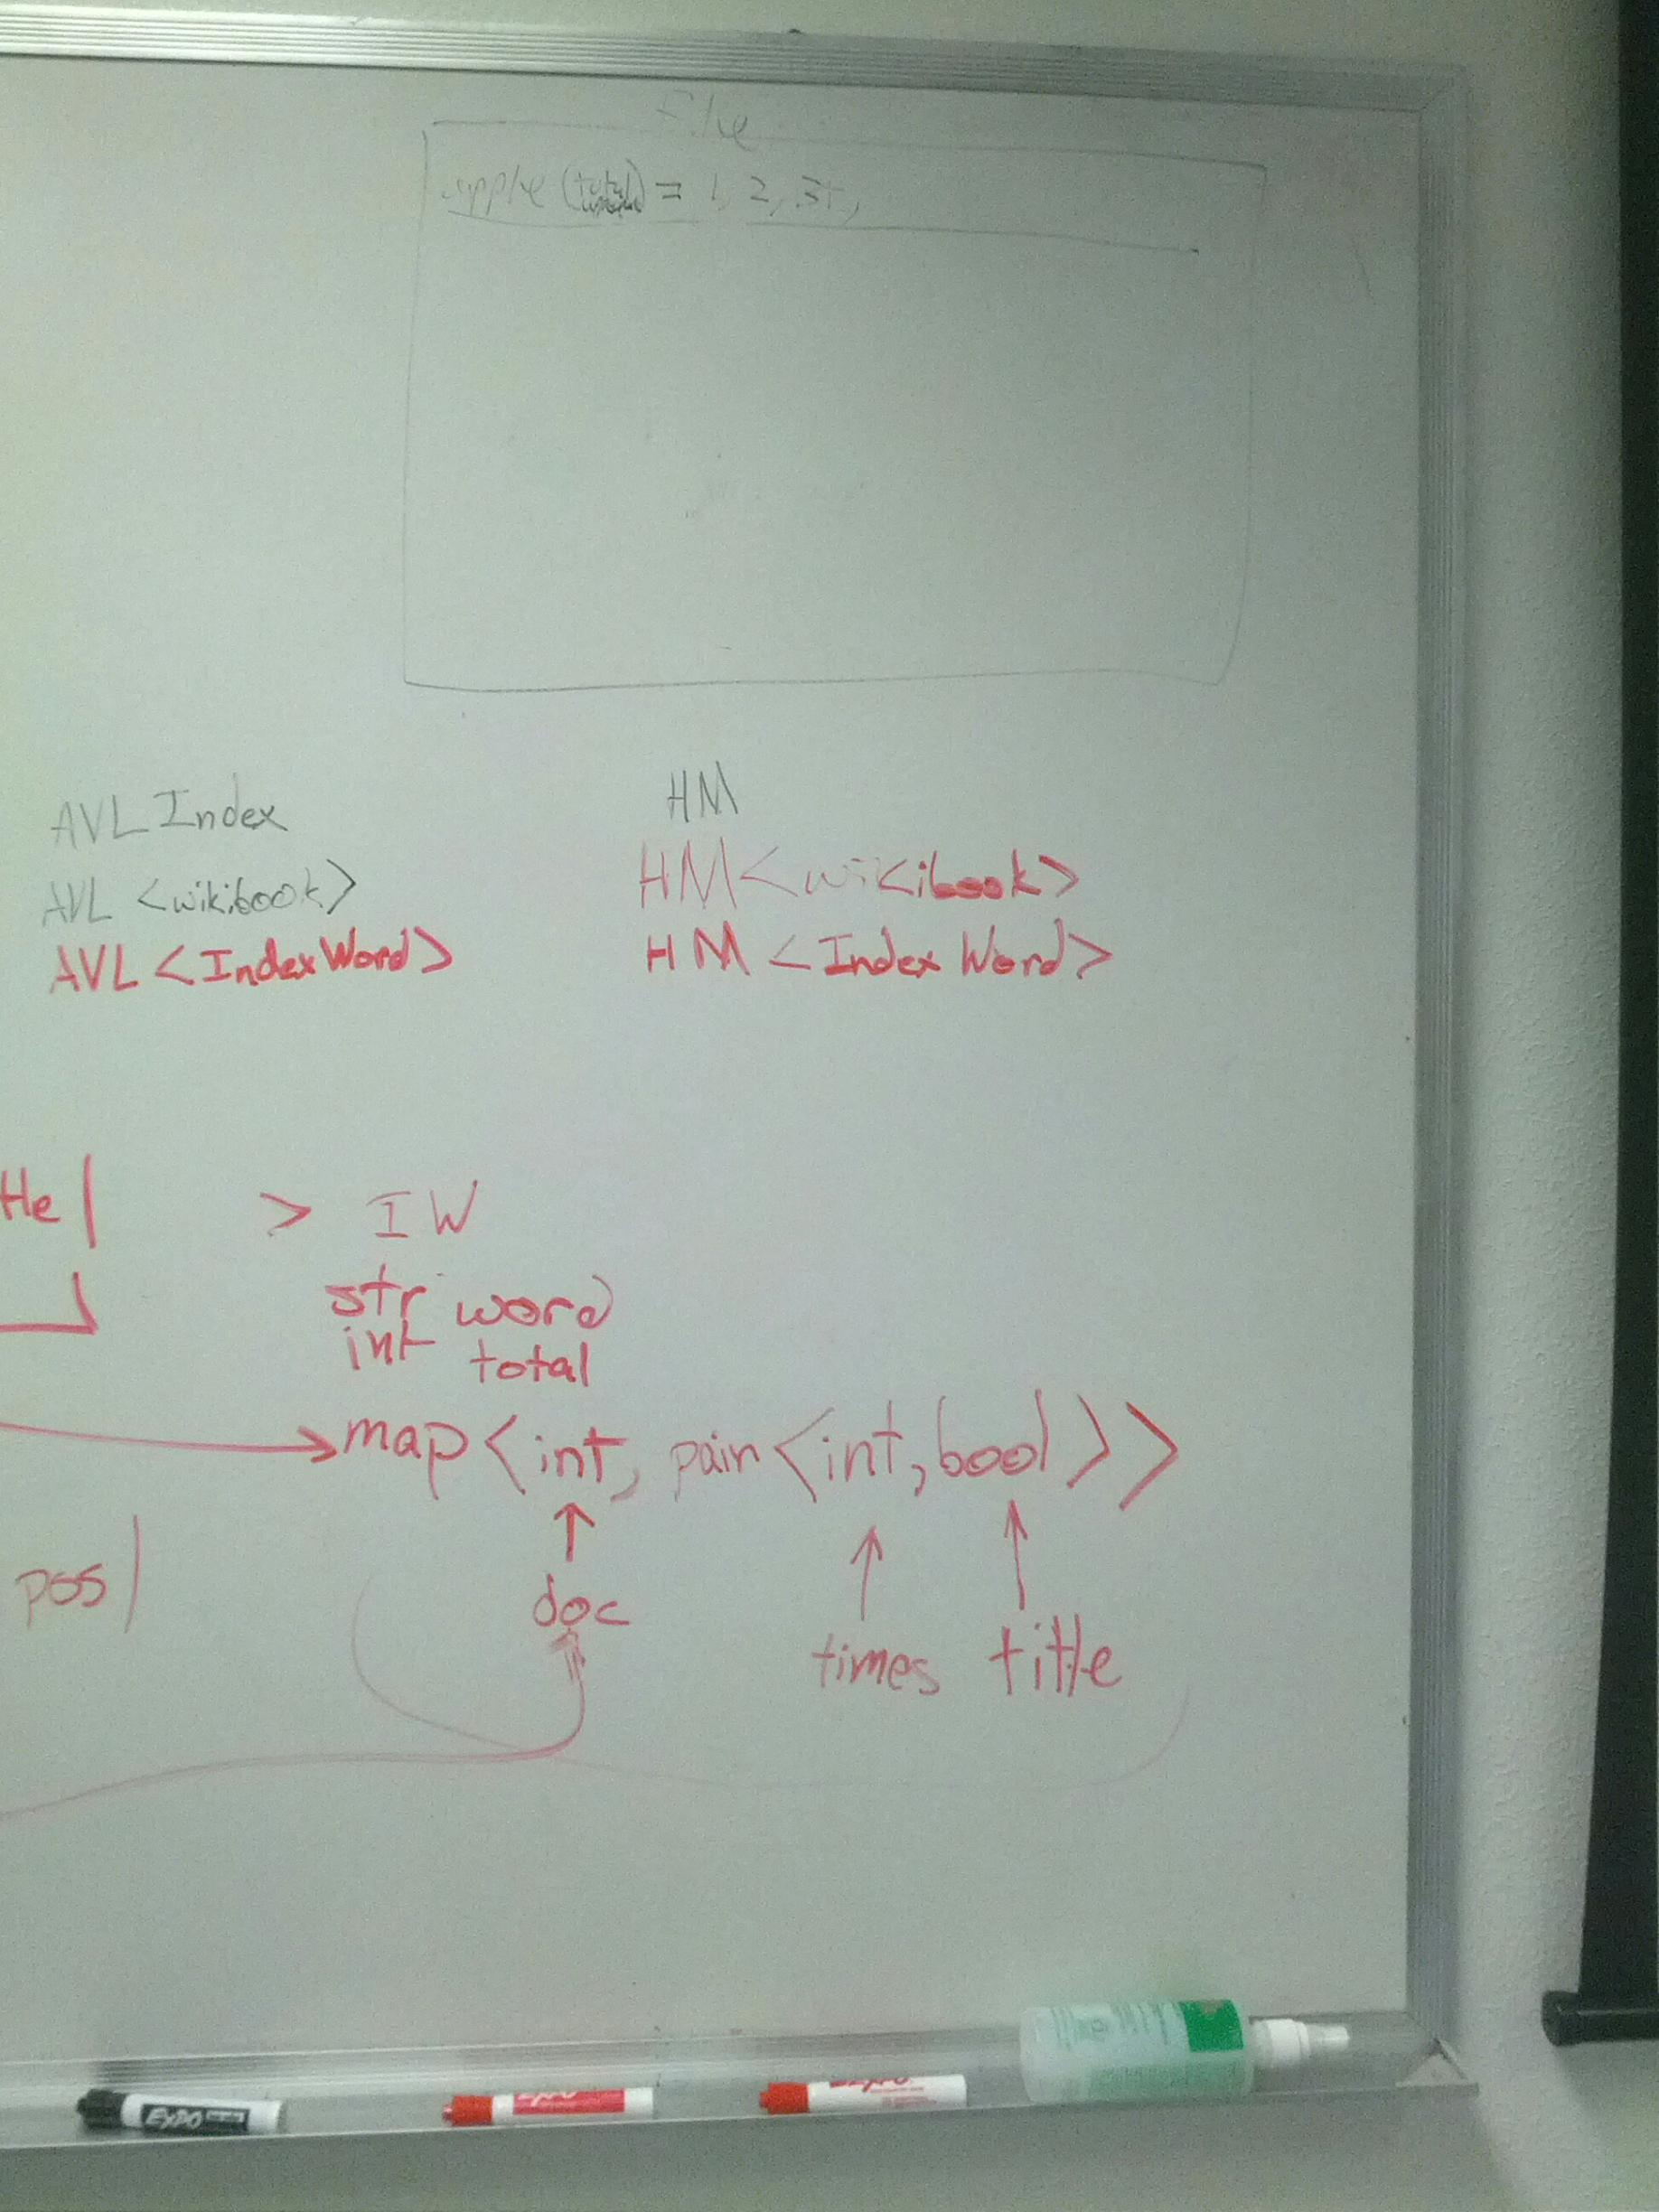 File
apple (total) = 1, 2, 3T,
AVL Index
AVL <wikibook>
AVL <IndexWord>
HM
HM<wikibook>
HM <Index Word>
> IW
str word
int total
map<int, pair<int,bool>>
doc
times title
pos|
EXPO
EXPO
EXPO